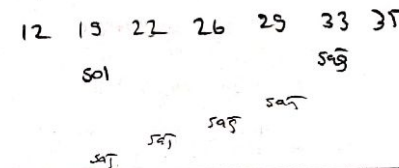 12 19 22 26 29 33 35
sol sağ
sağ
sağ
sağ
sağ